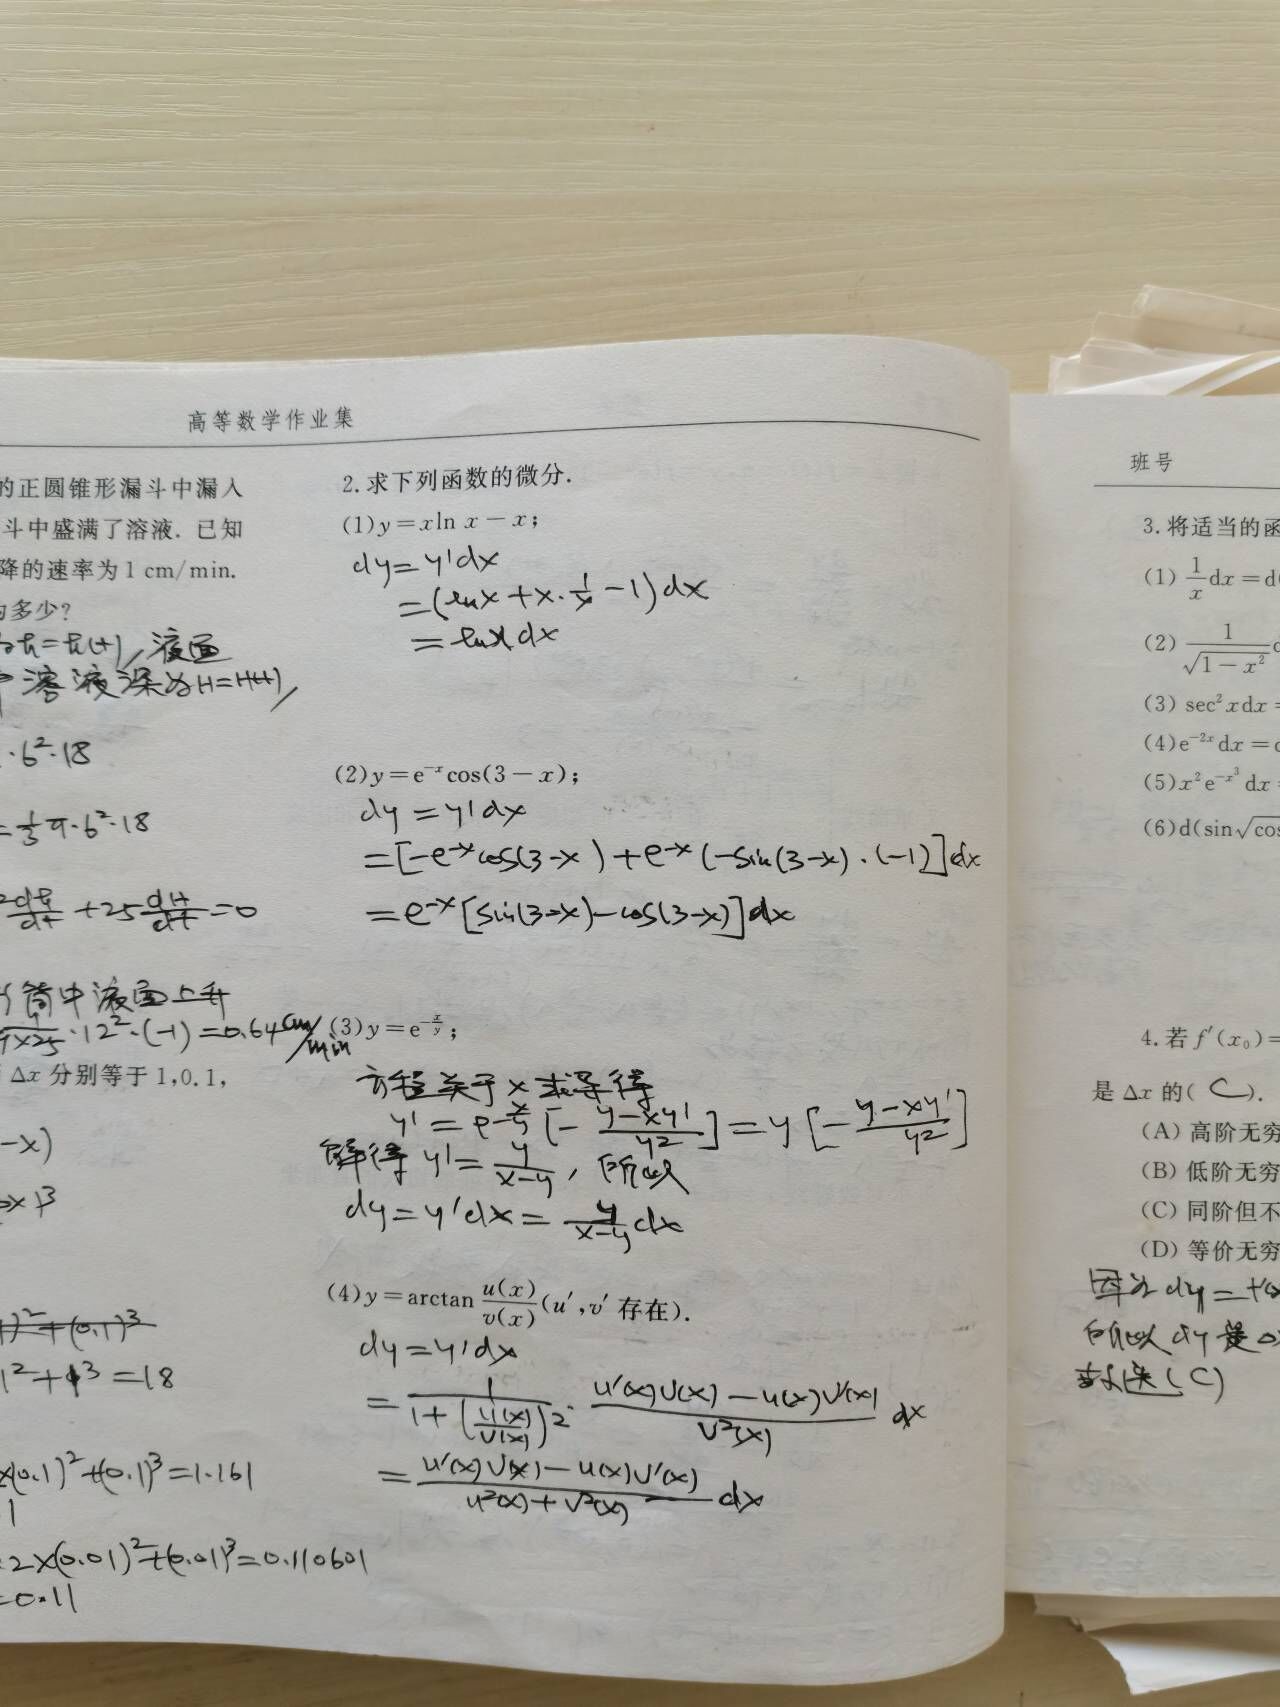 高等数学作业集
的正圆锥形漏斗中漏入
斗中盛满了溶液. 已知
降的速率为1 cm/min.
多少?
液面
溶液深为H=H(t),
·6²·18
=⅓π·6²·18
+25 dH/dt=0
筒中液面上升
·12²·(-1)=0.64cm/min
Δx 分别等于1,0.1,
-x)
1²+1³=18
(0.1)²+(0.1)³=1.161
2×(0.01)²+(0.01)³=0.110601
=0.11
2.求下列函数的微分.
(1)y=xln x-x;
dy=y'dx
=(lnx+x·1/x-1)dx
=lnxdx
(2)y=e⁻ˣcos(3-x);
dy=y'dx
=[-e⁻ˣcos(3-x)+e⁻ˣ(-sin(3-x)·(-1)]dx
=e⁻ˣ[sin(3-x)-cos(3-x)]dx
(3)y=e^(-x/y);
方程关于x求导得
y'=e^(-x/y)[-(y-xy')/y²]=y[-(y-xy')/y²]
解得y'=y/(x-y),所以
dy=y'dx=y/(x-y)dx
(4)y=arctan u(x)/v(x)(u′,v′存在).
dy=y'dx
=1/(1+(u(x)/v(x))²)·(u'(x)v(x)-u(x)v'(x))/v²(x) dx
=(u'(x)v(x)-u(x)v'(x))/(u²(x)+v²(x)) dx
班号
3.将适当的函
(1) 1/x dx=d(
(2) 1/√(1-x²)
(3) sec²xdx=
(4)e⁻²ˣdx=
(5)x²e^(-x³)dx
(6)d(sin√cos
4.若f′(x₀)=
是Δx的( C ).
(A) 高阶无穷
(B) 低阶无穷
(C) 同阶但不
(D) 等价无穷
因为dy=
所以dy是
选(C)